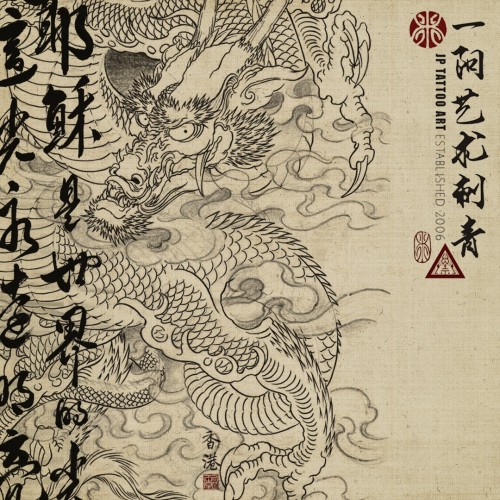 一阳艺术刺青
JP TATTOO ART ESTABLISHED 2006
耶稣是世界的光
這光永遠明亮
香港